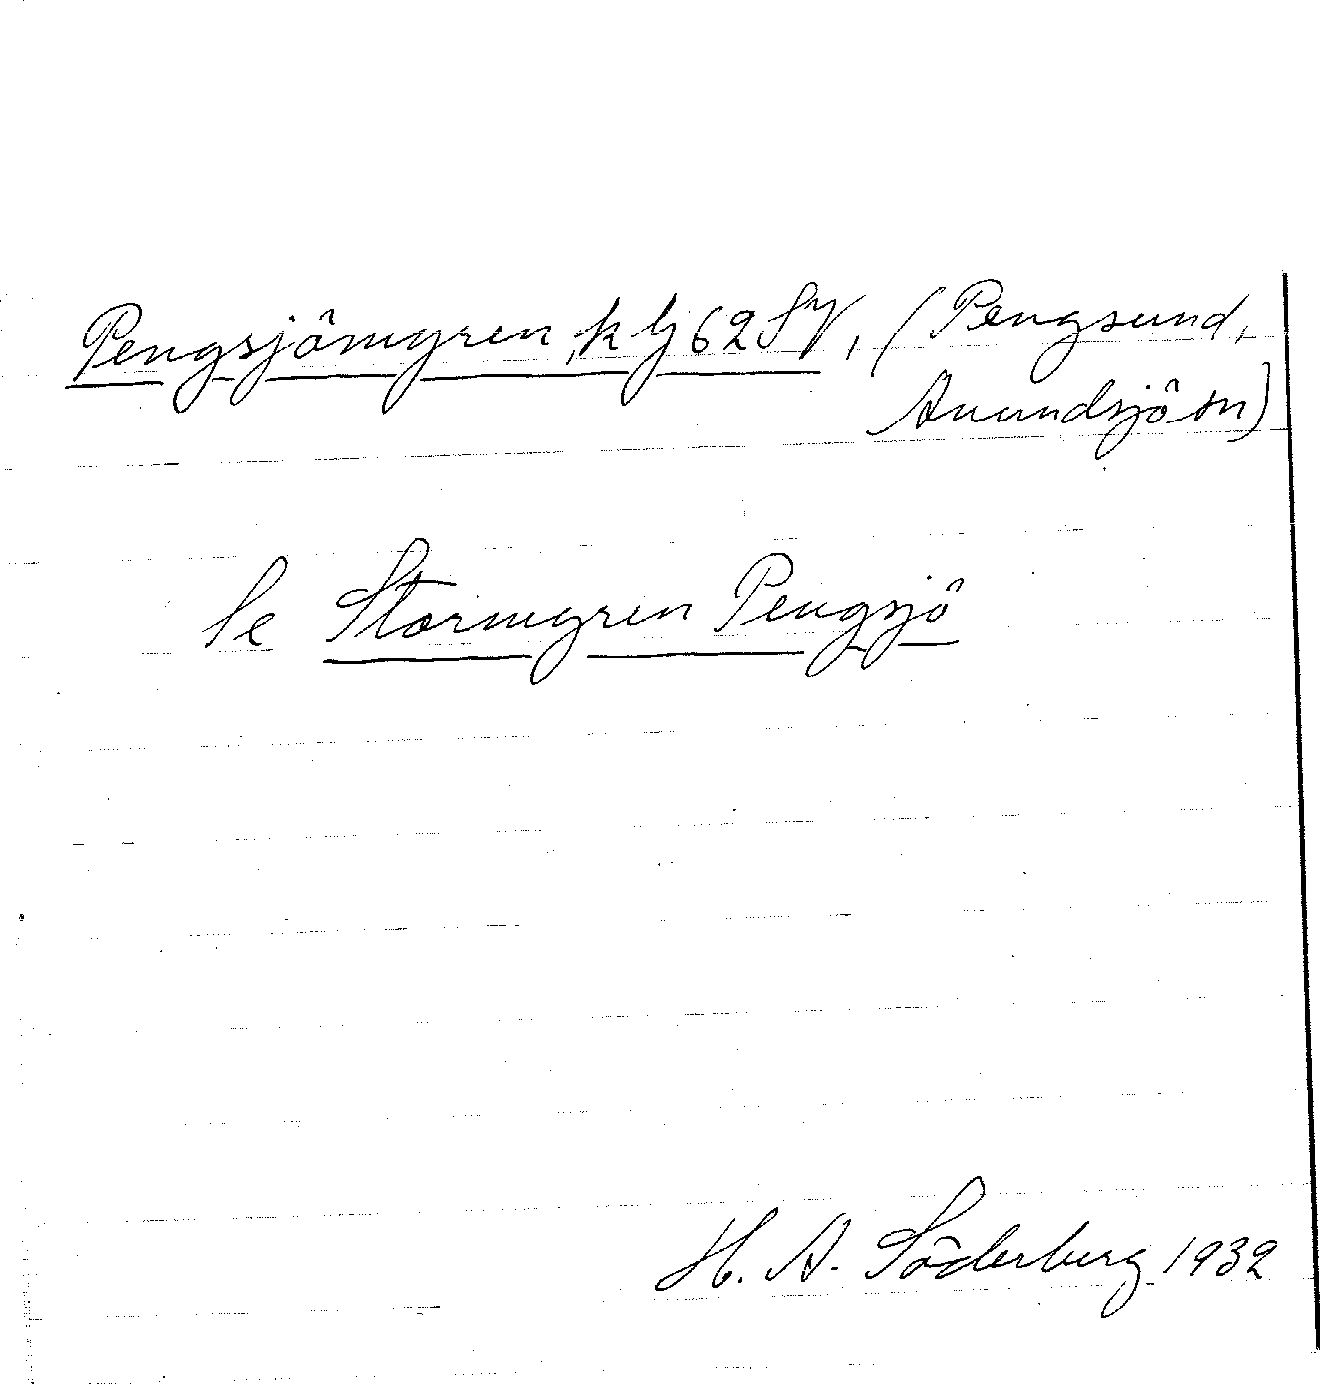 Pengsjömyren, k bj 62 SV, (Pengsund,
Anundsjö sn)
Se Stormyren Pengsjö
H. A. Söderberg 1932